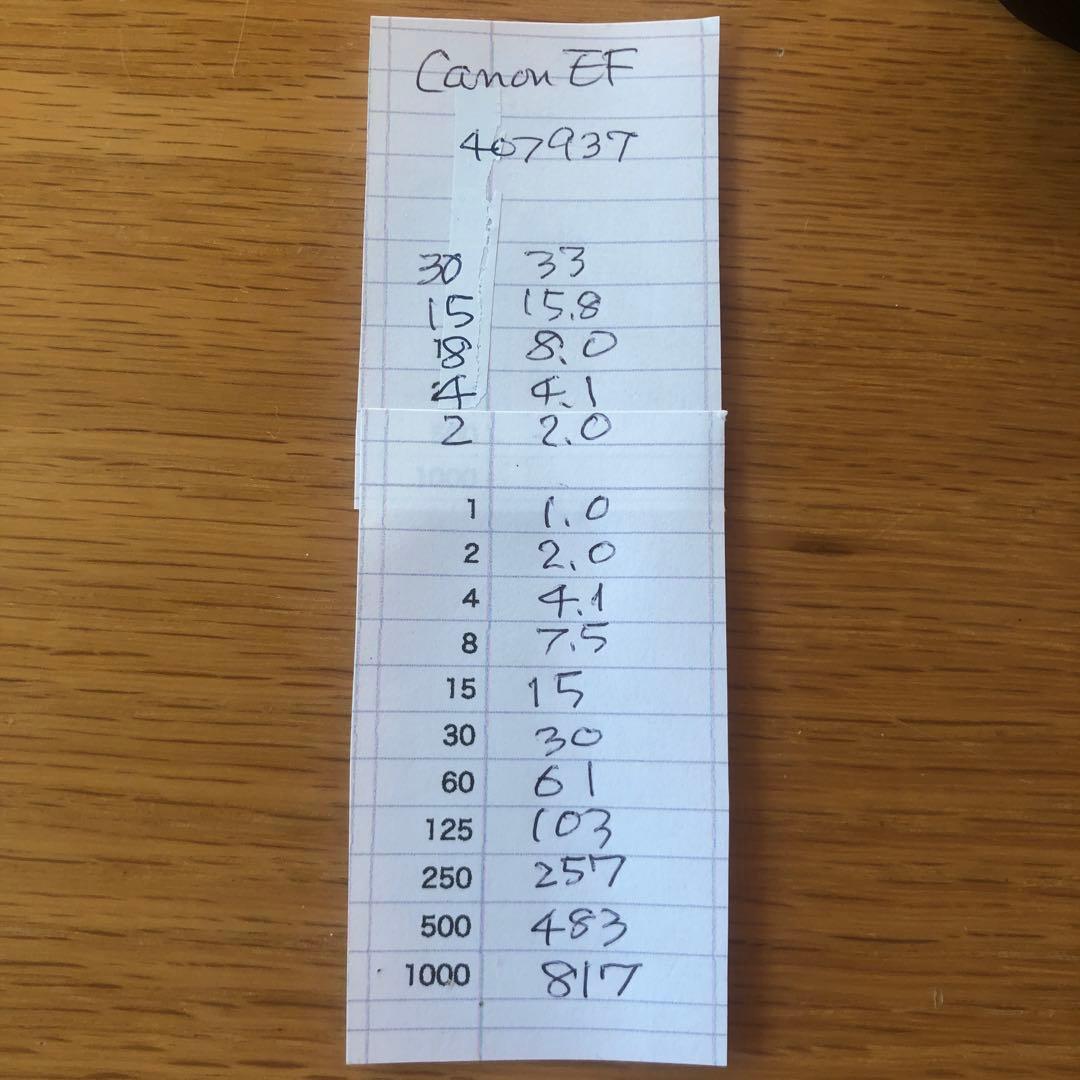 Canon EF
407937
30 33
15 15.8
8 8.0
4 4.1
2 2.0
1 1.0
2 2.0
4 4.1
8 7.5
15 15
30 30
60 61
125 103
250 257
500 483
1000 817